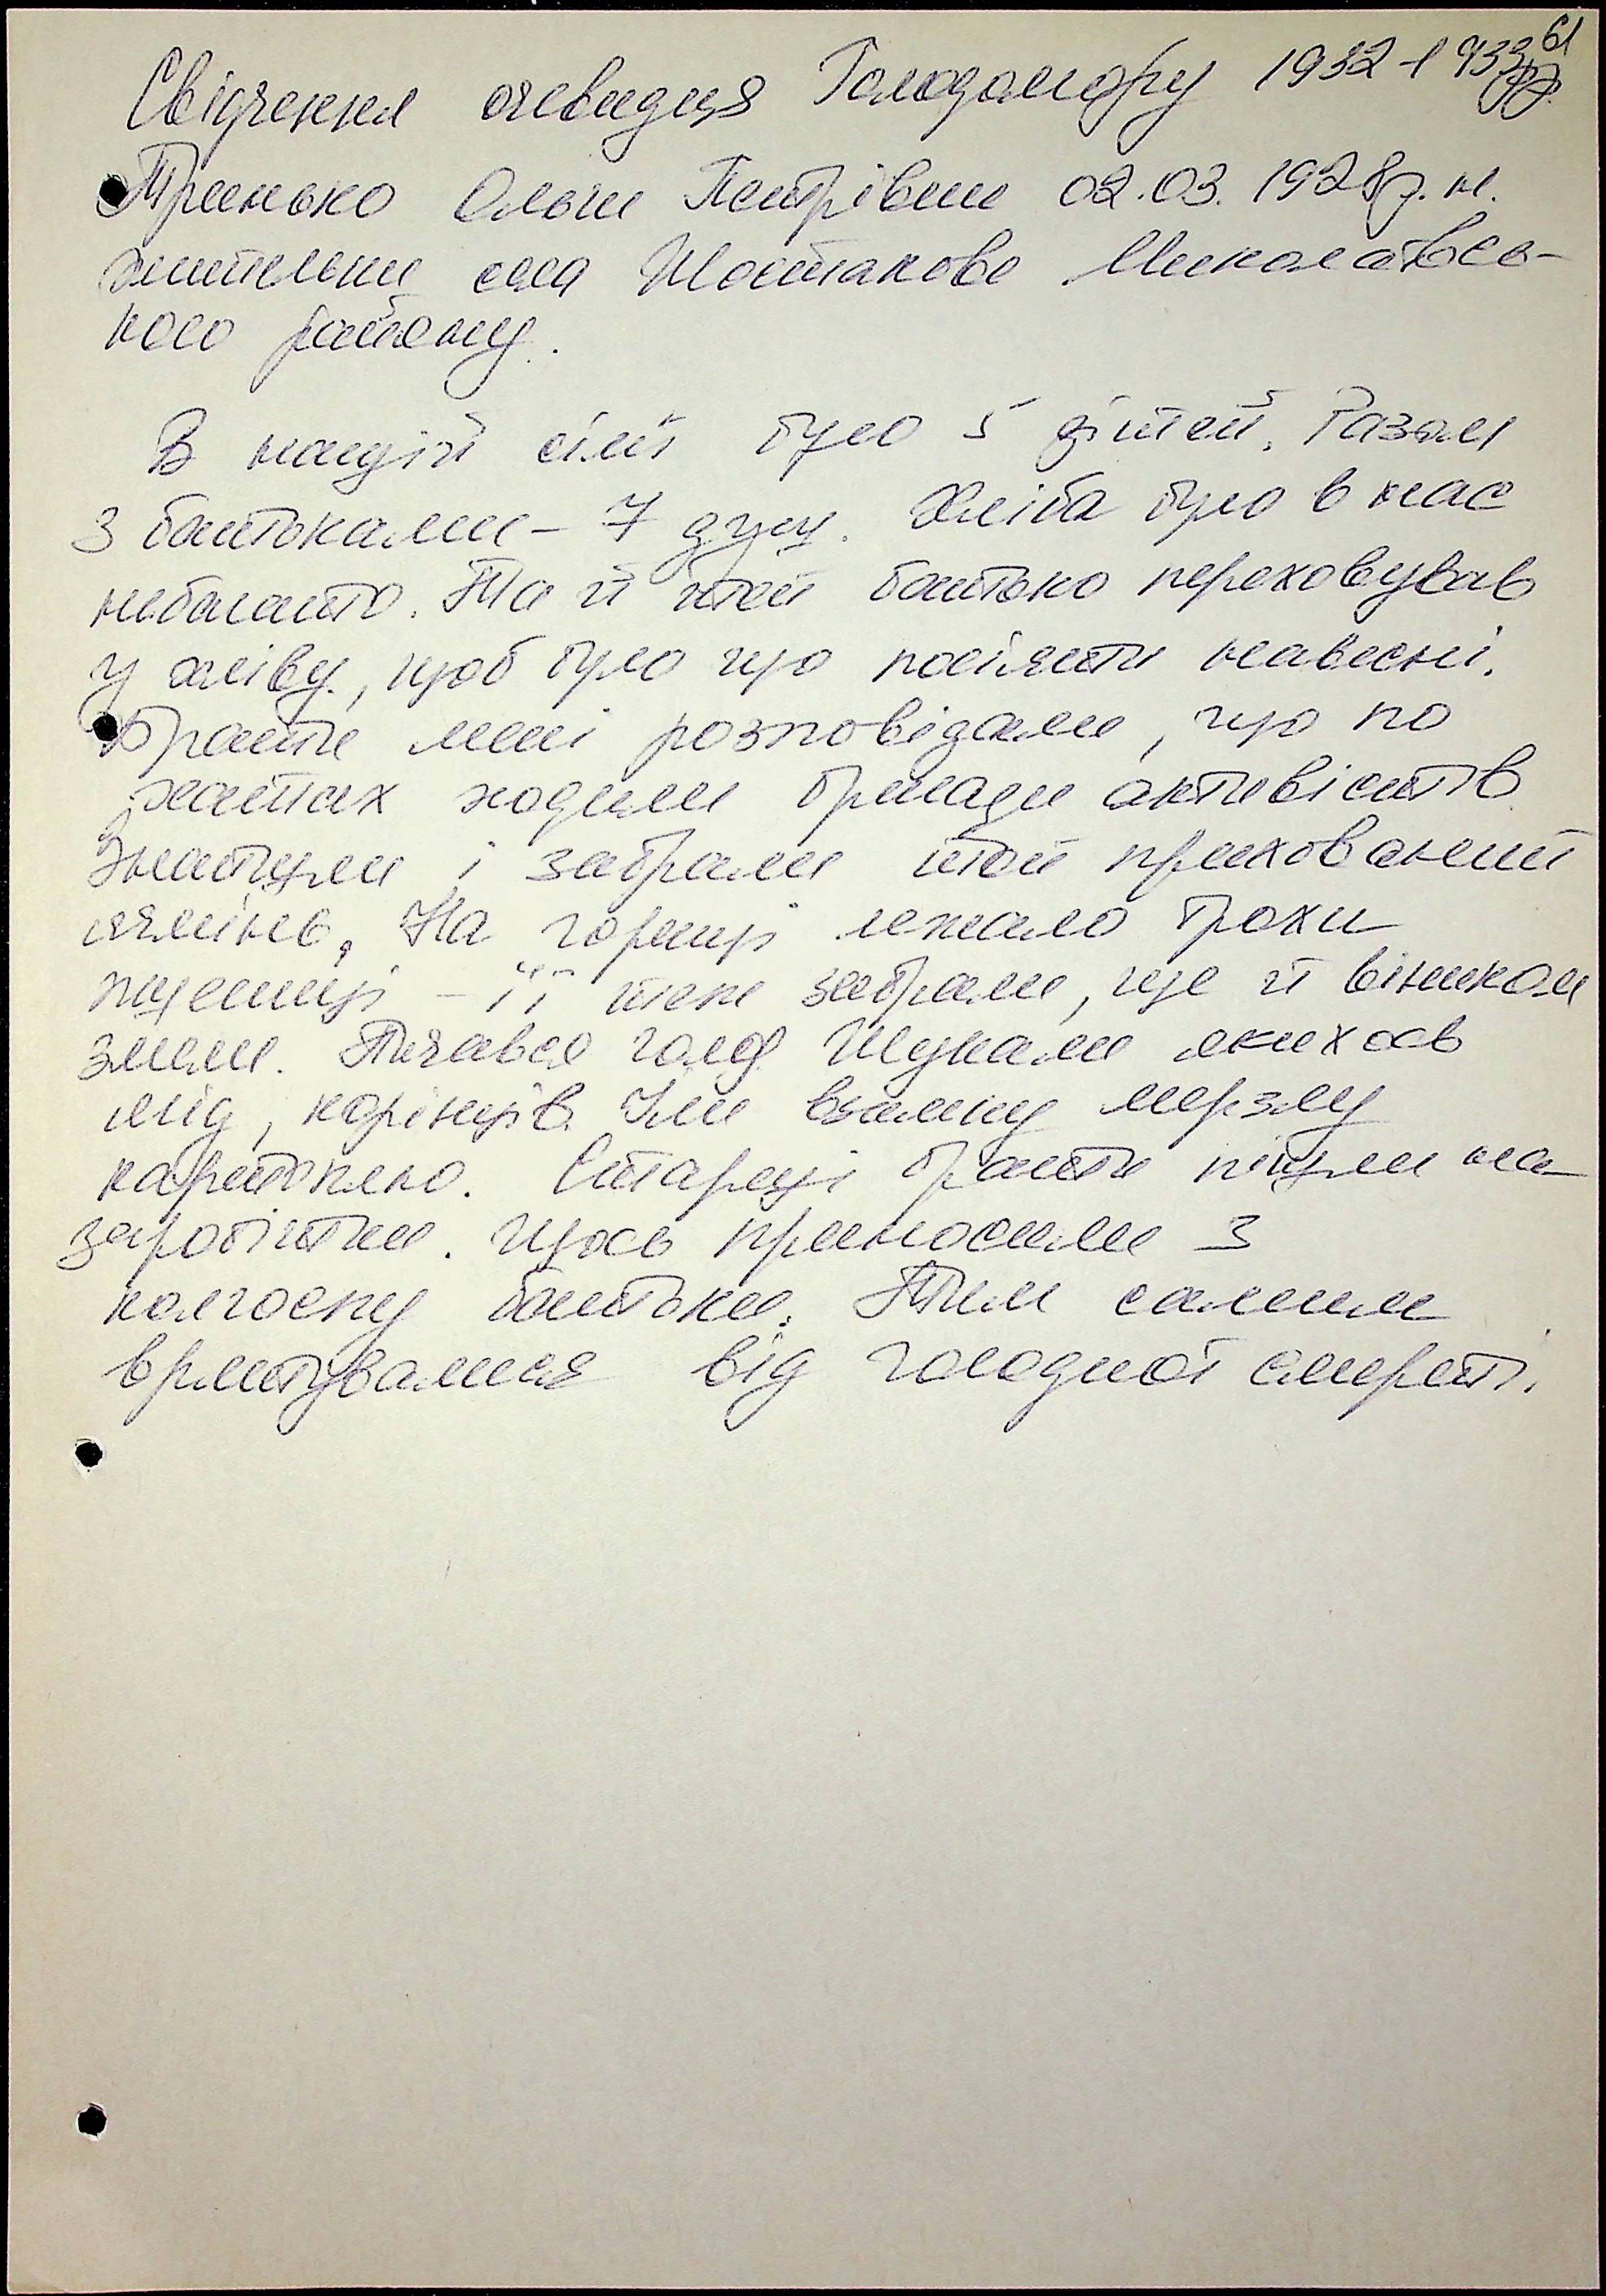 61
Свідчення очевидця Голодомору 1932-1933рр.
Гринько Ольги Петрівни 02.03.1928р.н.
жительки села Шостакове Миколаївсь-
кого району.
В нашій сім'ї було 5 дітей. Разом
з батьками - 7 душ. Хліба було в нас
небагато. Та й той батько переховував
у хліву, щоб було що посіяти навесні.
Брати мені розповідали, що по
хатах ходили бригади активістів.
Знайшли і забрали той прихований
ячмінь. На горищі лежало трохи
пшениці - її теж забрали, ще й віником
змели. Почався голод. Шукали якихось
ягід, корінців. Їли взимку мерзлу
картоплю. Старші брати пішли на
заробітки. Щось приносили з
колгоспу батьки. Тим самим
врятувалися від голодної смерті.